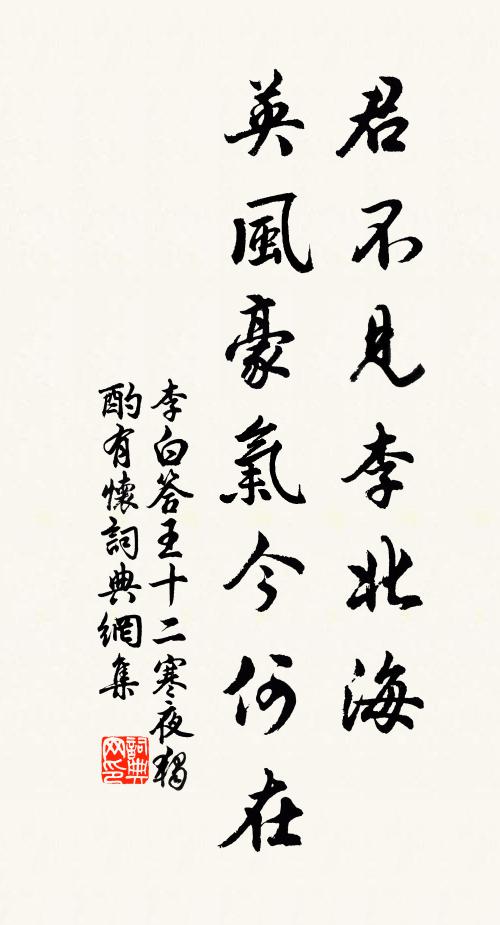 君不見李北海
英風豪氣今何在
李白答王十二寒夜獨
酌有懷詞典網集
詞典
网印